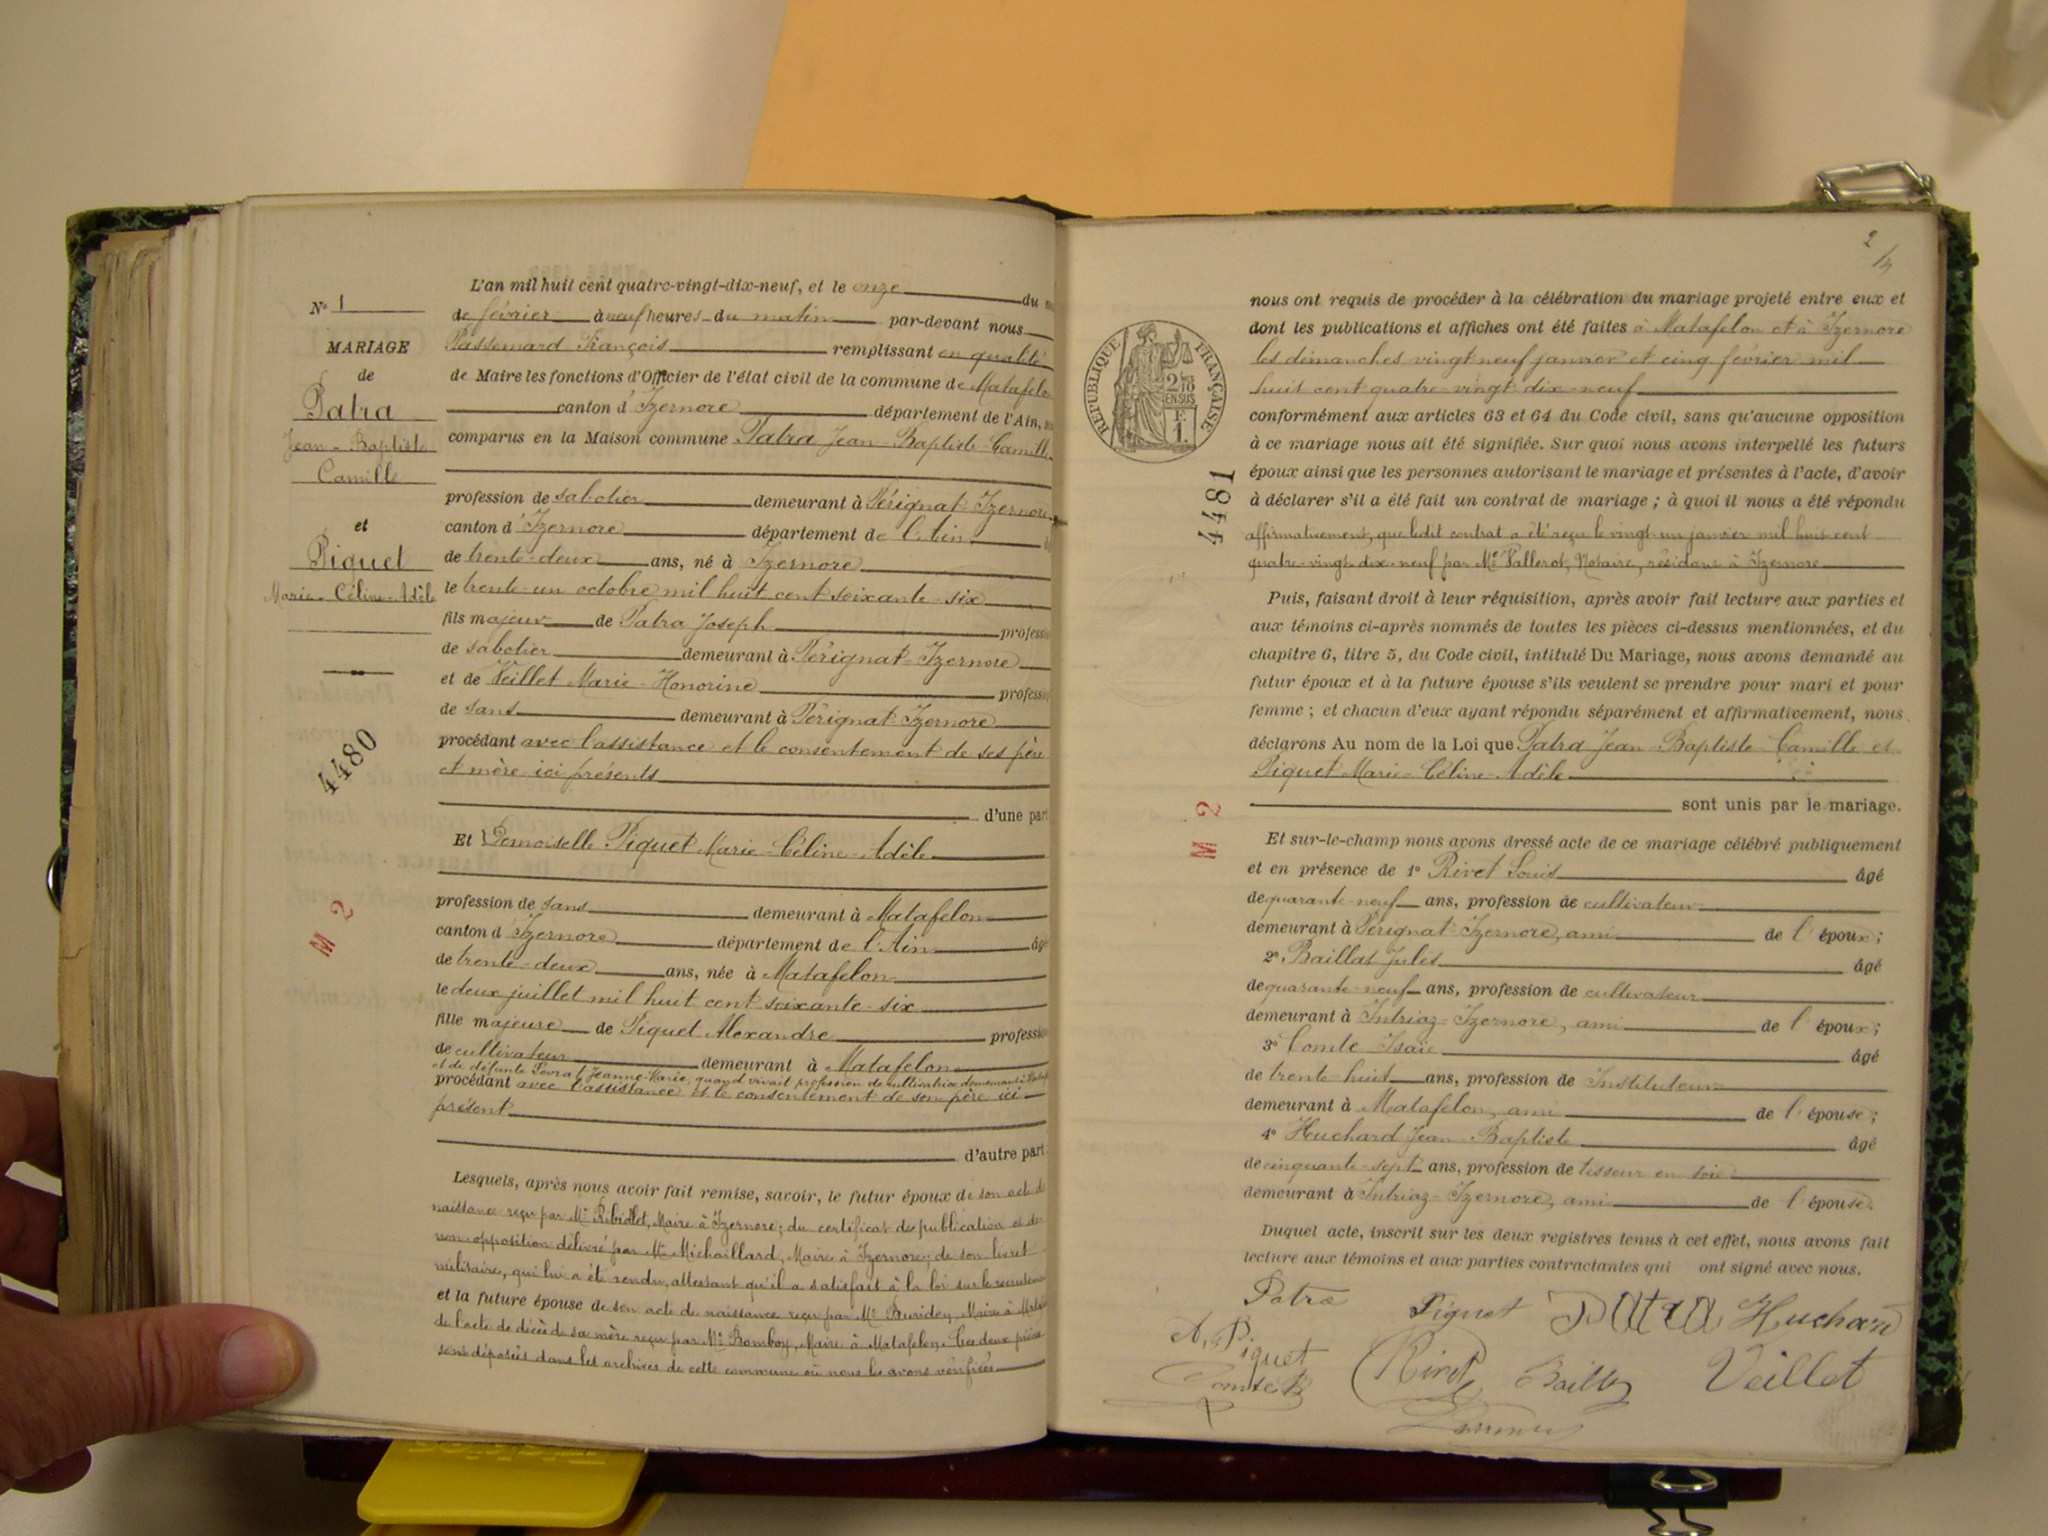 N° 1
MARIAGE
de
Patra
Jean-Baptiste
Camille
et
Piguet
Marie-Céline-Adèle
4480
M 2
L'an mil huit cent quatre-vingt-dix-neuf, et le onze du
de février à neuf heures du matin par-devant nous
Passemard François remplissant en qualité
de Maire les fonctions d'Officier de l'état civil de la commune de Matafelon
canton d'Izernore département de l'Ain,
comparus en la Maison commune Patra Jean-Baptiste-Camille
profession de sabotier demeurant à Pérignat-Izernore
canton d'Izernore département de l'Ain
de trente-deux ans, né à Izernore
le trente-un octobre mil huit cent soixante-six
fils majeur de Patra Joseph profession
de sabotier demeurant à Pérignat-Izernore
et de Veillet Marie-Honorine profession
de sans demeurant à Pérignat-Izernore
procédant avec l'assistance et le consentement de ses père
et mère ici présents
d'une part
Et Demoiselle Piguet Marie-Céline-Adèle
profession de sans demeurant à Matafelon
canton d'Izernore département de l'Ain âgé
de trente-deux ans, née à Matafelon
le deux juillet mil huit cent soixante-six
fille majeure de Piguet Alexandre profession
de cultivateur demeurant à Matafelon
et de défunte Jeanne-Marie, quand vivait profession de cultivatrice demeurant à
procédant avec l'assistance et le consentement de son père ici
présent
d'autre part
Lesquels, après nous avoir fait remise, savoir, le futur époux de son acte de
naissance reçu par Mr Maire à Izernore; du certificat de publication et de
non opposition délivré par Mr Michaillard, Maire à Izernore; de son livret
militaire, qui lui a été rendu, attestant qu'il a satisfait à la loi sur le recrutement
et la future épouse de son acte de naissance reçu par Mr Maire à
de l'acte de décès de sa mère reçu par Mr Bomboy, Maire à Matafelon. Ces deux pièces
sont déposées dans les archives de cette commune où nous les avons vérifiées
2
RÉPUBLIQUE FRANÇAISE
4481
M 2
nous ont requis de procéder à la célébration du mariage projeté entre eux et
dont les publications et affiches ont été faites à Matafelon et à Izernore
les dimanches vingt neuf janvier et cinq février mil
huit cent quatre-vingt-dix-neuf
conformément aux articles 63 et 64 du Code civil, sans qu'aucune opposition
à ce mariage nous ait été signifiée. Sur quoi nous avons interpellé les futurs
époux ainsi que les personnes autorisant le mariage et présentes à l'acte, d'avoir
à déclarer s'il a été fait un contrat de mariage ; à quoi il nous a été répondu
affirmativement, que ledit contrat a été reçu le vingt-un janvier mil huit cent
quatre-vingt-dix-neuf par Me Vallerot, Notaire, résidant à Izernore
Puis, faisant droit à leur réquisition, après avoir fait lecture aux parties et
aux témoins ci-après nommés de toutes les pièces ci-dessus mentionnées, et du
chapitre 6, titre 5, du Code civil, intitulé Du Mariage, nous avons demandé au
futur époux et à la future épouse s'ils veulent se prendre pour mari et pour
femme ; et chacun d'eux ayant répondu séparément et affirmativement, nous
déclarons Au nom de la Loi que Patra Jean-Baptiste Camille et
Piguet Marie-Céline-Adèle
sont unis par le mariage.
Et sur-le-champ nous avons dressé acte de ce mariage célébré publiquement
et en présence de 1° Rivet Louis âgé
de quarante-neuf ans, profession de cultivateur
demeurant à Pérignat-Izernore, ami de l'époux ;
2° Baillat Jules âgé
de quarante-neuf ans, profession de cultivateur
demeurant à Intriaz-Izernore, ami de l'époux ;
3° Comte Isaïe âgé
de trente huit ans, profession de Instituteur
demeurant à Matafelon, ami de l'épouse ;
4° Huchard Jean-Baptiste âgé
de cinquante-sept ans, profession de tisseur en soie
demeurant à Intriaz-Izernore, ami de l'épouse.
Duquel acte, inscrit sur les deux registres tenus à cet effet, nous avons fait
lecture aux témoins et aux parties contractantes qui ont signé avec nous.
Patra Piguet Patra Huchard
A. Piguet Rivet Veillet